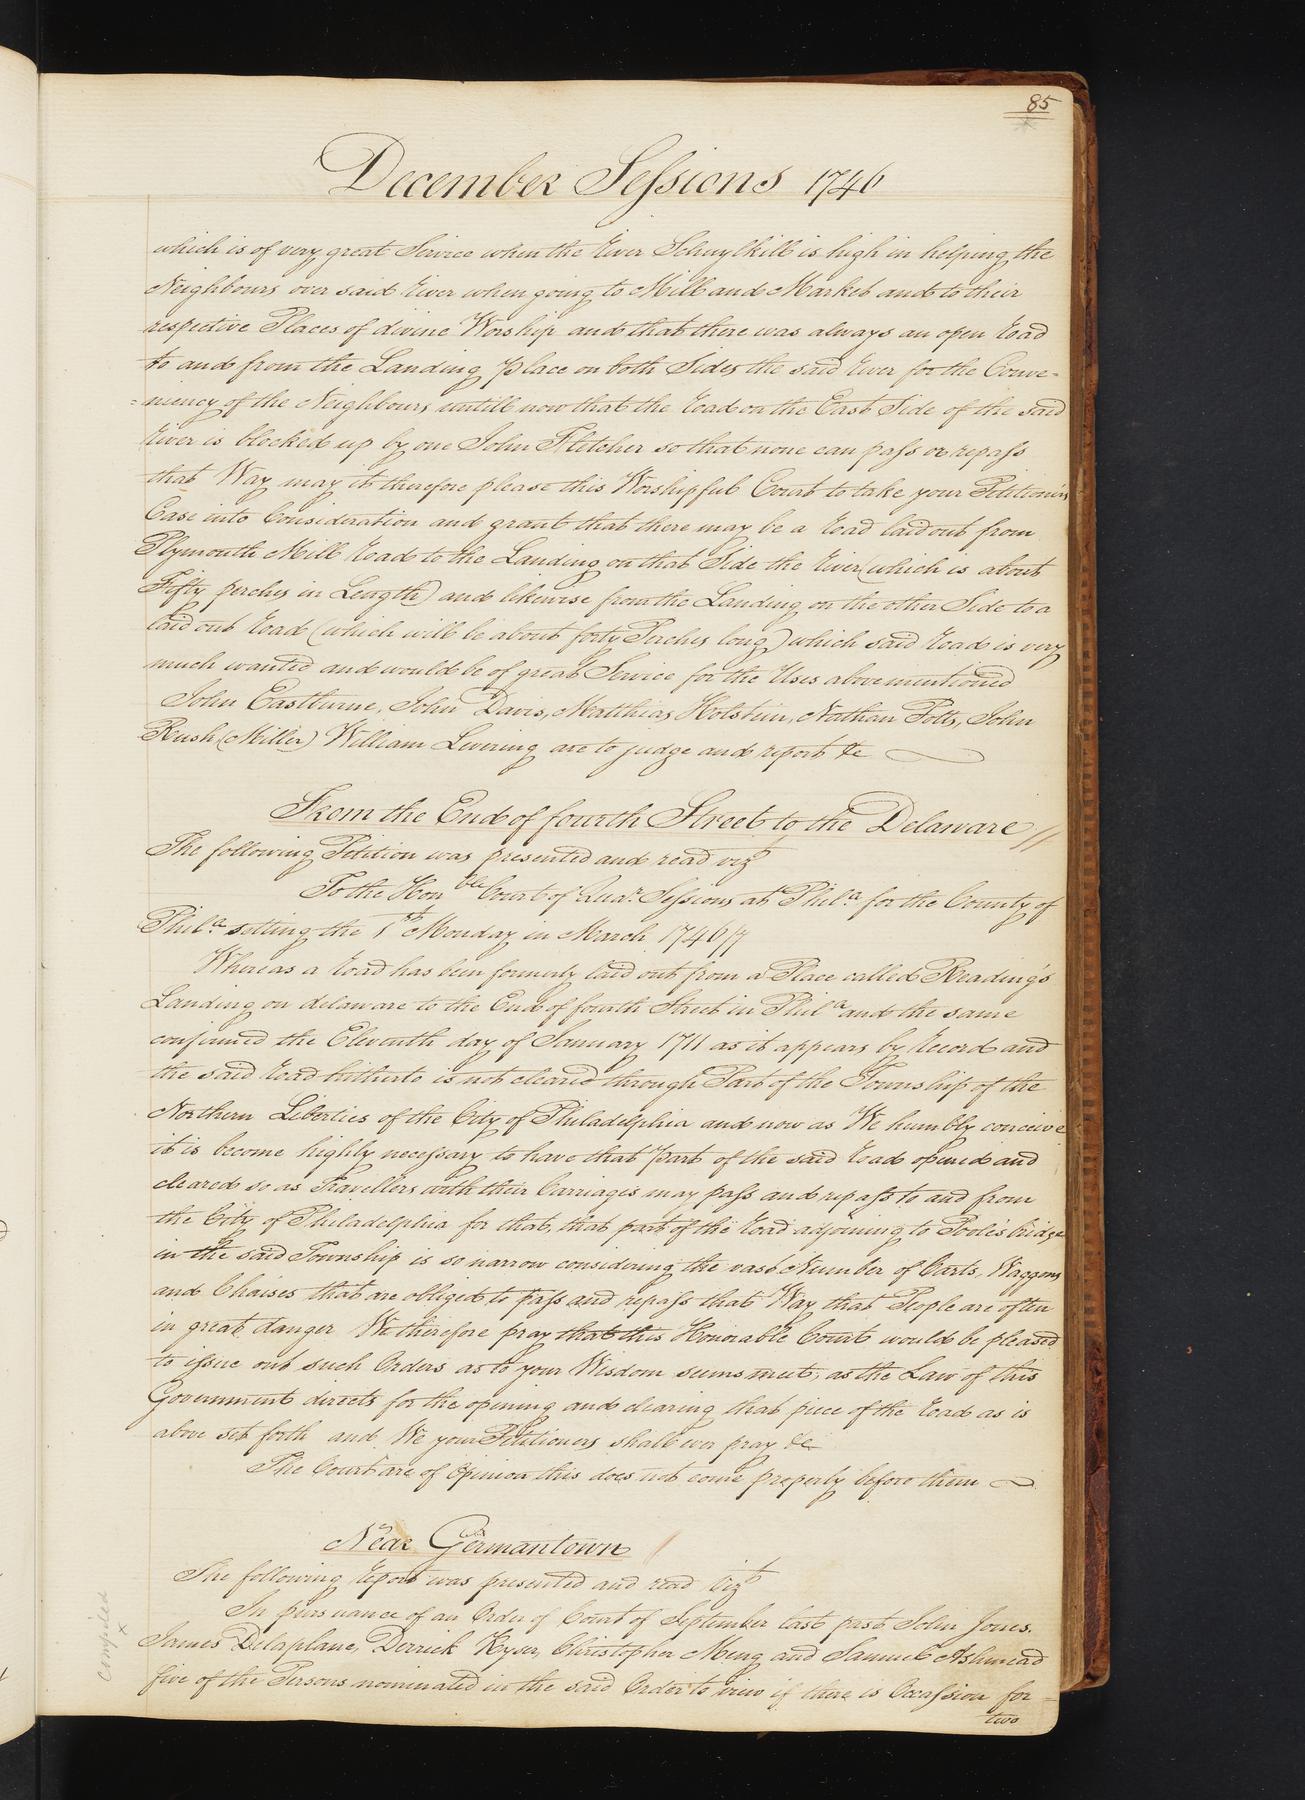 85
December Sessions 1746
which is of very great Service when the River Schuylkill is high in helping the
Neighbours over said River when going to Mill and Market and to their
respective Places of divine Worship and that there was always an open Road
to and from the Landing place on both Sides the said River for the Conve=
=niency of the Neighbours untill now that the Road on the East Side of the said
River is blocked up by one John Fletcher so that none can pass or repass
that Way may it therefore please this Worshipful Court to take your Petitioners
Case into Consideration and grant that there may be a Road laid out from
Plymouth Mill Road to the Landing on that Side the River (which is about
Fifty perches in Length) and likewise from the Landing on the other Side to a
laid out Road (which will be about forty Perches long) which said Road is very
much wanted and would be of great Service for the Uses above mentioned
John Eastburne, John Davis, Matthias Holstein, Nathan Potts, John
Rush (Miller) William Levering are to judge and report &c
From the End of fourth Street to the Delaware //
The following Petition was presented and read vizt
To the Honble Court of Quar. Sessions at Phila for the County of
Phila sitting the 1st Monday in March 1746/7
Whereas a Road has been formerly laid out from a Place called Reading's
Landing on delaware to the End of fourth Street in Phila and the same
confirmed the Eleventh day of January 1711 as it appears by Record and
the said Road hitherto is not cleared through Part of the Township of the
Northern Liberties of the City of Philadelphia and now as We humbly conceive
it is become highly necessary to have that Part of the said Road opened and
cleared so as Travellers with their Carriages may pass and repass to and from
the City of Philadelphia for that, that part of the Road adjoining to Pooles bridge
in the said Township is so narrow considering the vast Number of Carts, Waggons
and Chaises that are obliged to pass and repass that Way that People are often
in great danger We therefore pray that this Honorable Court would be pleased
to issue out such Orders as to your Wisdom seems meet, as the Law of this
Government directs for the opening and clearing that piece of the Road as is
above set forth and We your Petitioners shall ever pray &c
The Court are of Opinion this does not come properly before them
Near Germantown /
The following Report was presented and read Vizt
In pursuance of an Order of Court of September last past John Jones,
James Delaplane, Derrick Keyser, Christopher Meng and Samuel Ashmead
five of the Persons nominated in the said Order to view if there is Occassion for=
two
Compiled
x